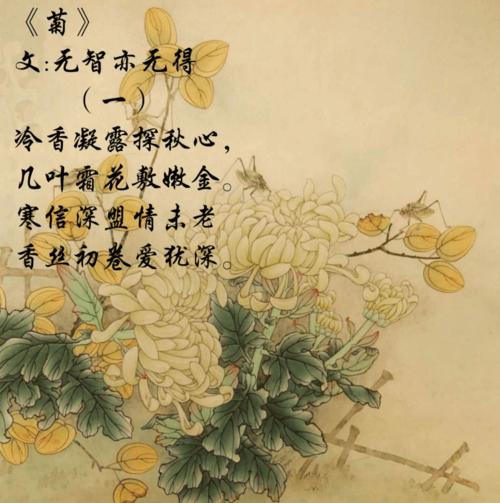 《菊》
文:无智亦无得
（一）
冷香凝露探秋心，
几叶霜花敷嫩金。
寒信深盟情未老
香丝初卷爱犹深。